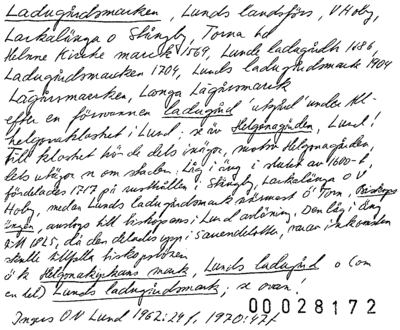 Ladugårdsmarken, Lunds landsförs, V Hoby,
Lackalänga o Stångby, Torna hd
Helnne Kircke marck 1569, Lunde ladugårdh 1686,
Ladugårdsmarcken 1704, Lunds ladugårdsmark 1904
Lågårsmarcken, Langa Lågårsmarck
efter en försvunnen ladugård 'utgård' under Hel-
helgonaklostret i Lund; se äv Helgonagården, Lund!
till klostret hörde dels inägor, motsv Helgonagården,
dels utägor n om staden. Låg i äng i slutet av 1600-t,
fördelades 1717 på rusthållen i Stångby, Lackalänga o V
Hoby, medan Lunds ladugårdsmark närmast Ö Torn, Biskops
ängen anslogs till biskopens i Lund avlöning. Den låg i äng
till 1825, då den delades upp i 5 avsöndelotter, varav inkomsten
skulle tillfalla biskopslönen
ö k Helgonakyrkans mark, Lunds ladugård o (om
en del) Lunds ladugårdsmark; se ovan!
Ingers ON Lund 1962:29 f, 1970:47 f
00028172